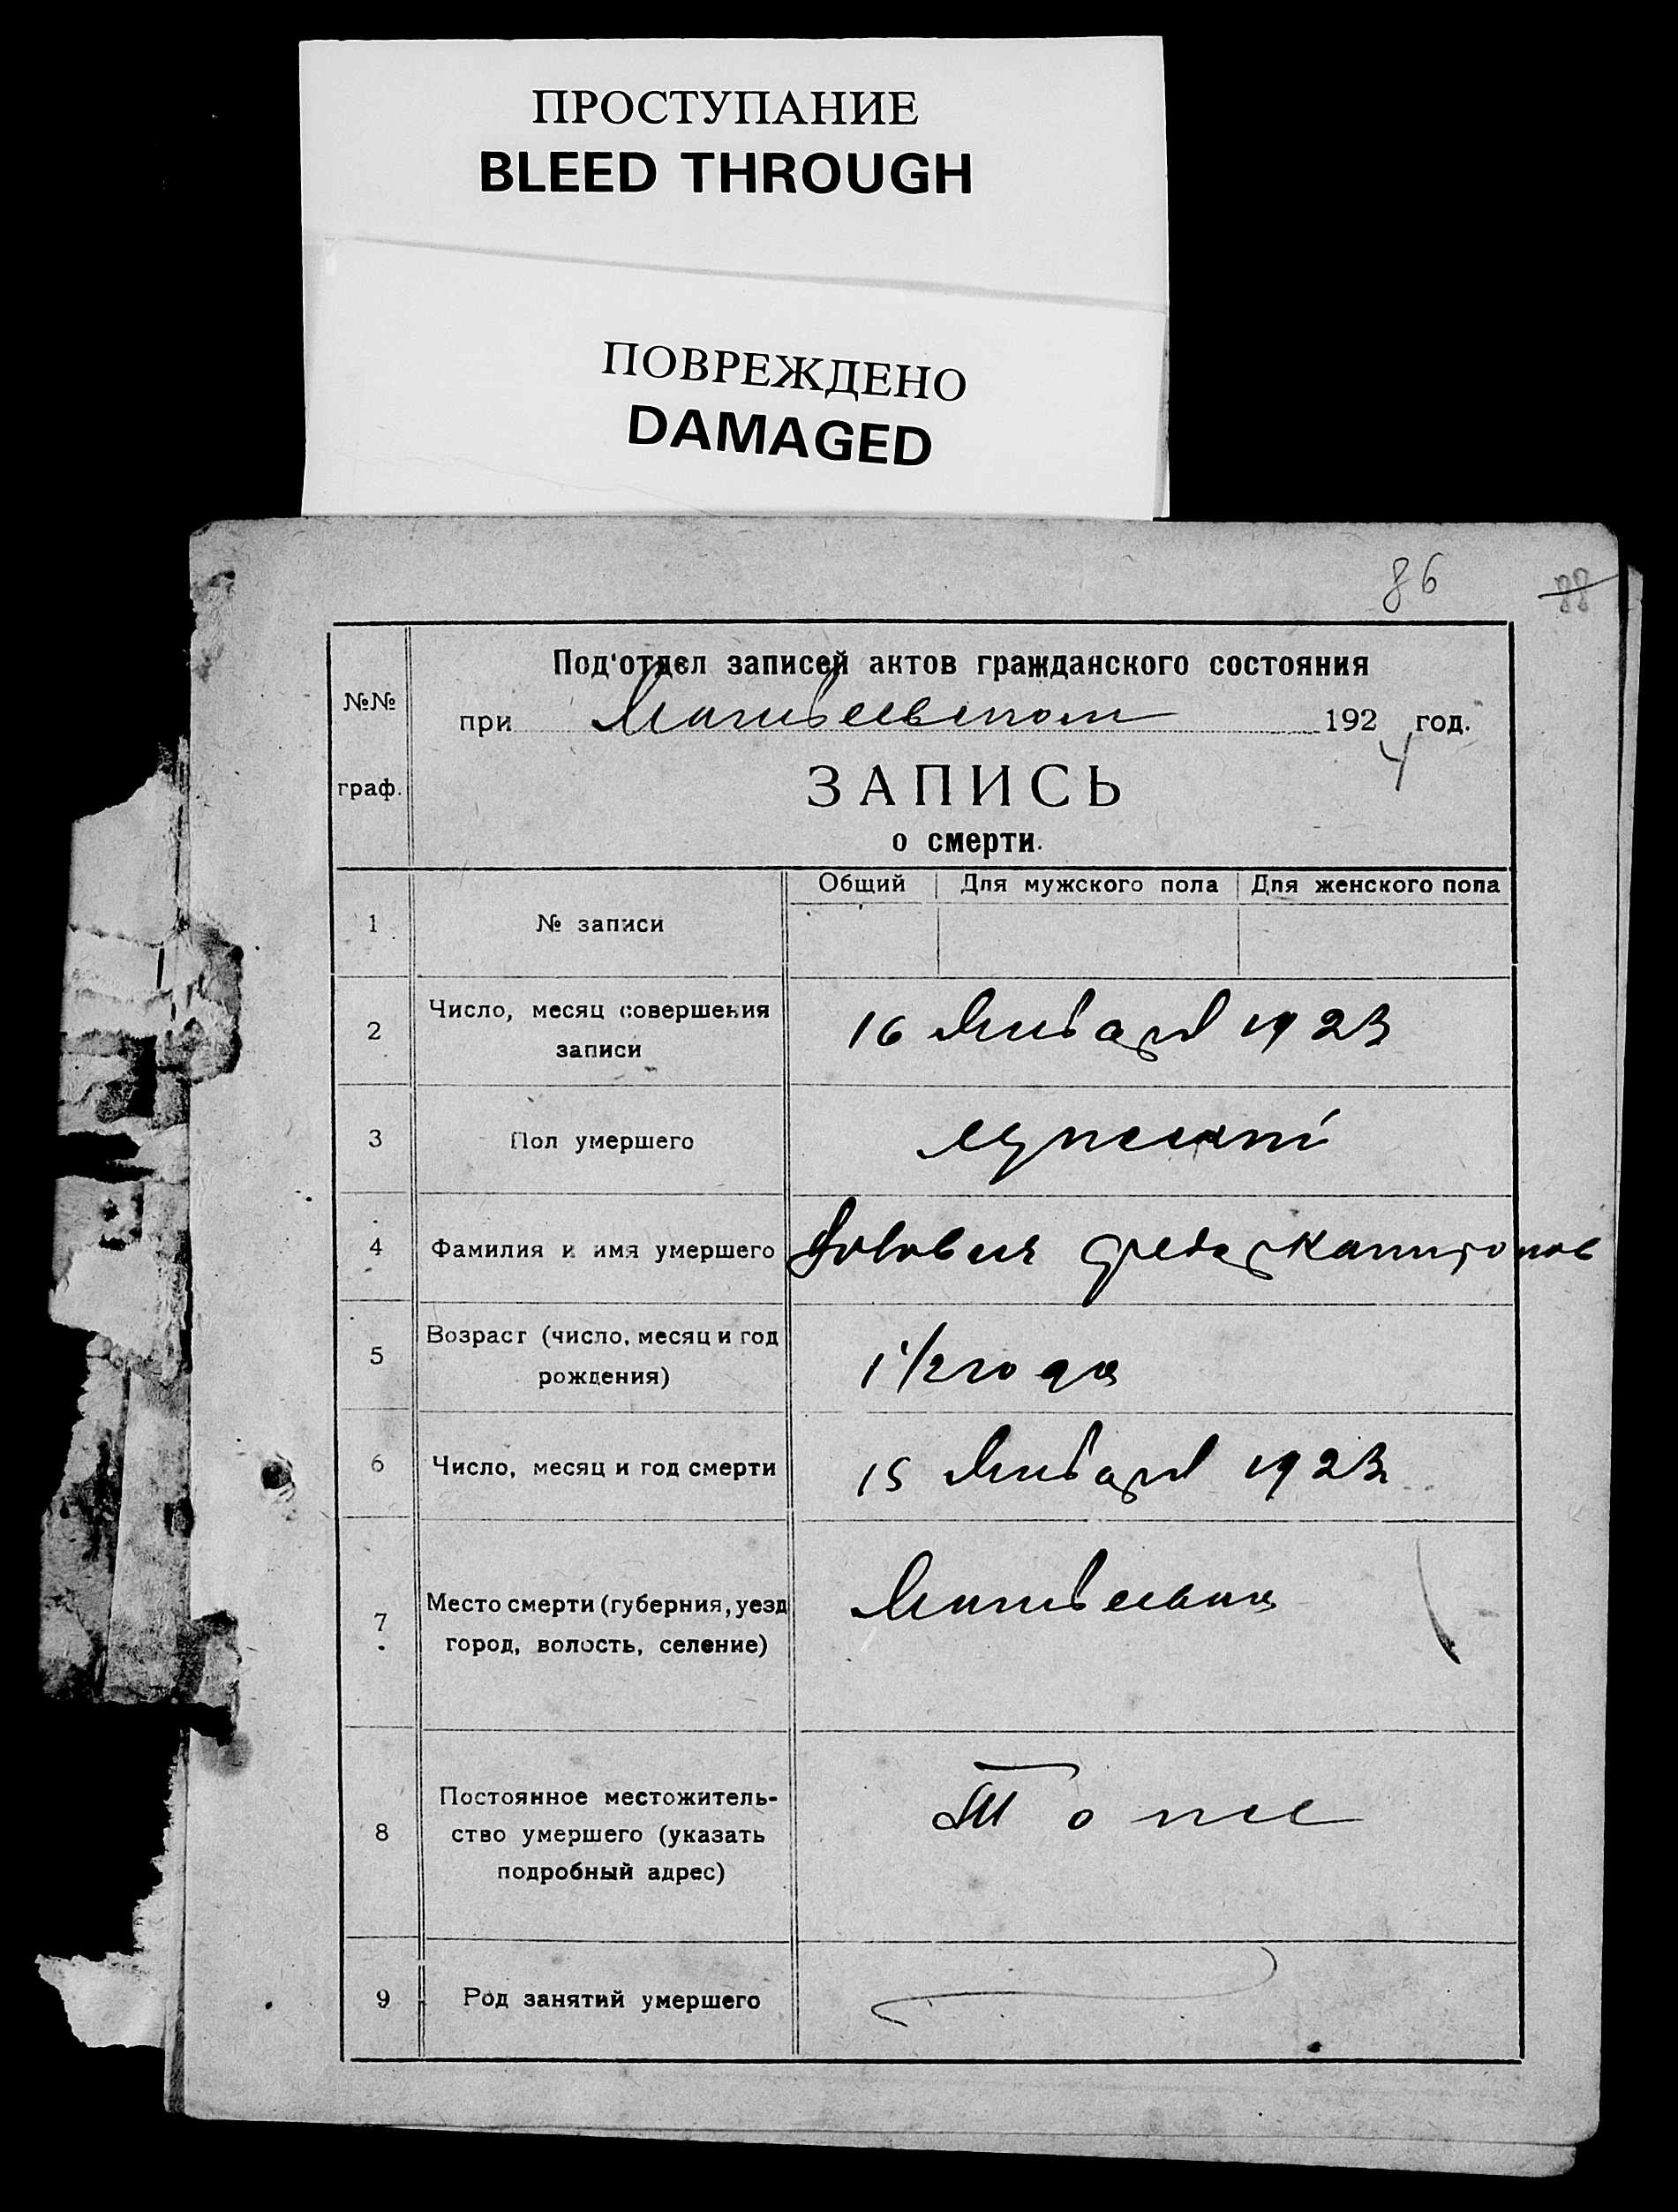 ПРОСТУПАНИЕ
BLEED THROUGH
ПОВРЕЖДЕНО
DAMAGED
86 88
№№ граф.
Под'отдел записей актов гражданского состояния
при Матвеевском 192 4 год.
ЗАПИСЬ
о смерти.
Общий Для мужского пола Для женского пола
1 № записи
2 Число, месяц совершения записи 16 Января 1923
3 Пол умершего мужской
4 Фамилия и имя умершего
5 Возраст (число, месяц и год рождения) 1 1/2 года
6 Число, месяц и год смерти 15 Января 1923
7 Место смерти (губерния, уезд город, волость, селение) Матвеевка
8 Постоянное местожительство умершего (указать подробный адрес) Тоже
9 Род занятий умершего